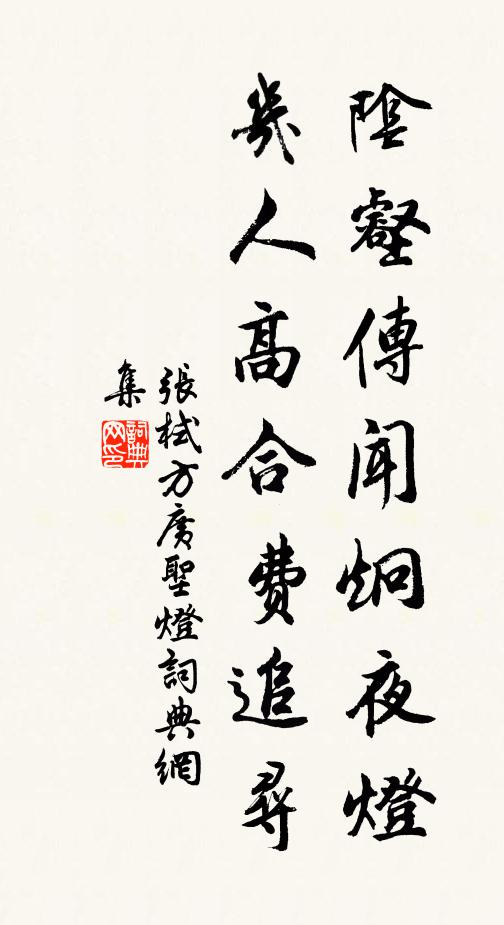 陰壑傳聞炯夜燈
幾人高合費追尋
張栻方廣聖燈詞典網
集
詞典网印